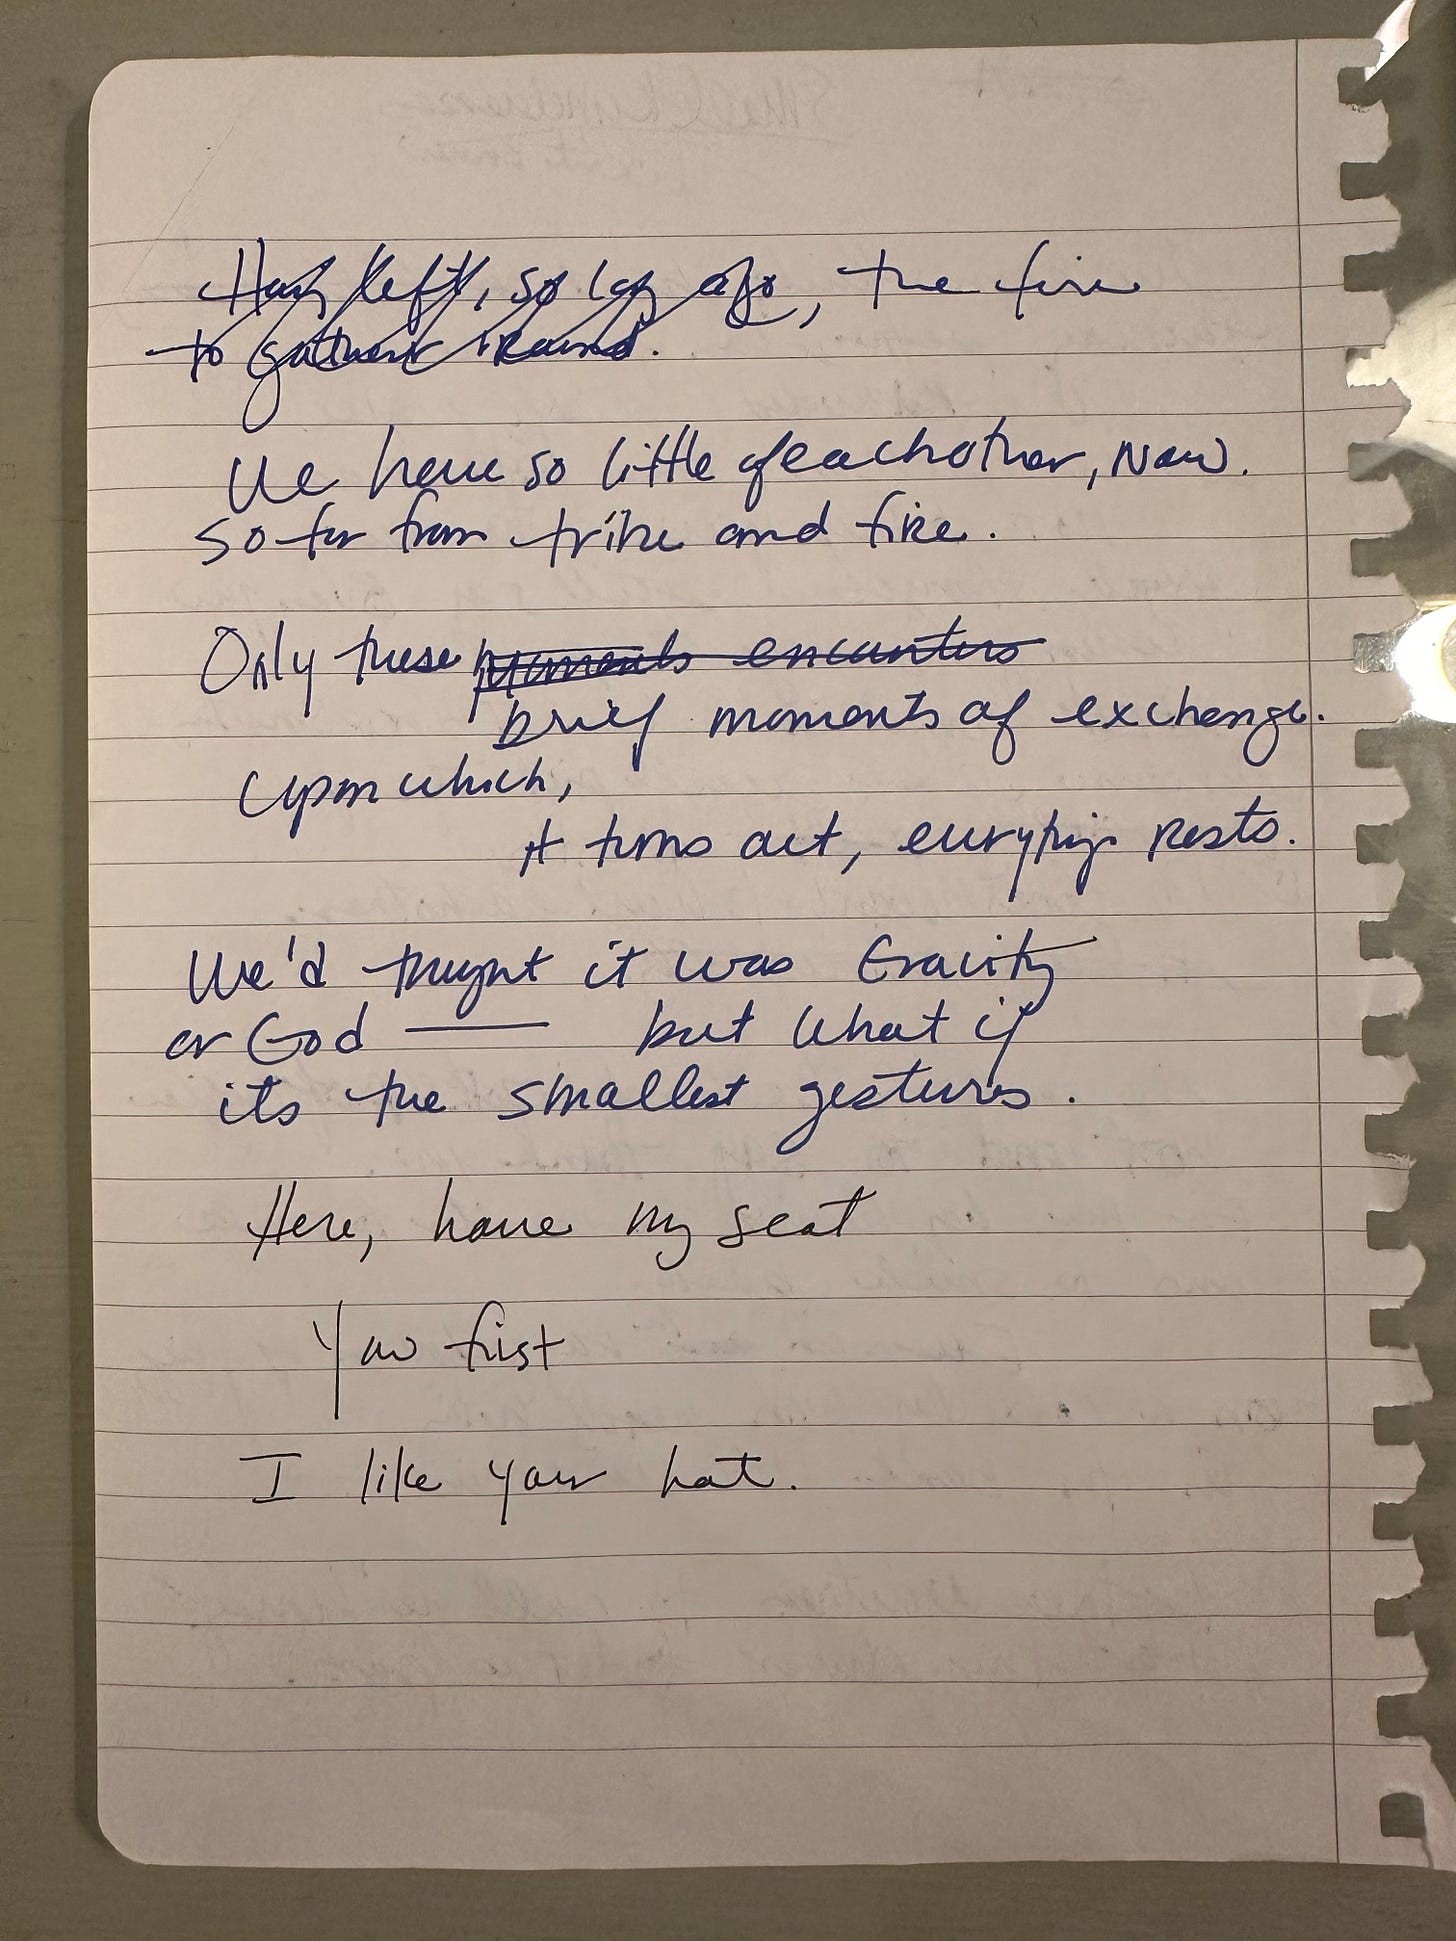 Having left, so long ago, the fire
to gather around.
We have so little of eachother, now.
So far from tribe and fire.
Only these moments encounters
brief moments of exchange.
Upon which,
it turns out, everything rests.
We'd thought it was Gravity
or God — but what if
its the smallest gestures.
Here, have my seat
You first
I like your hat.